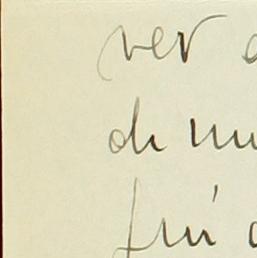 ver
de mu
fui